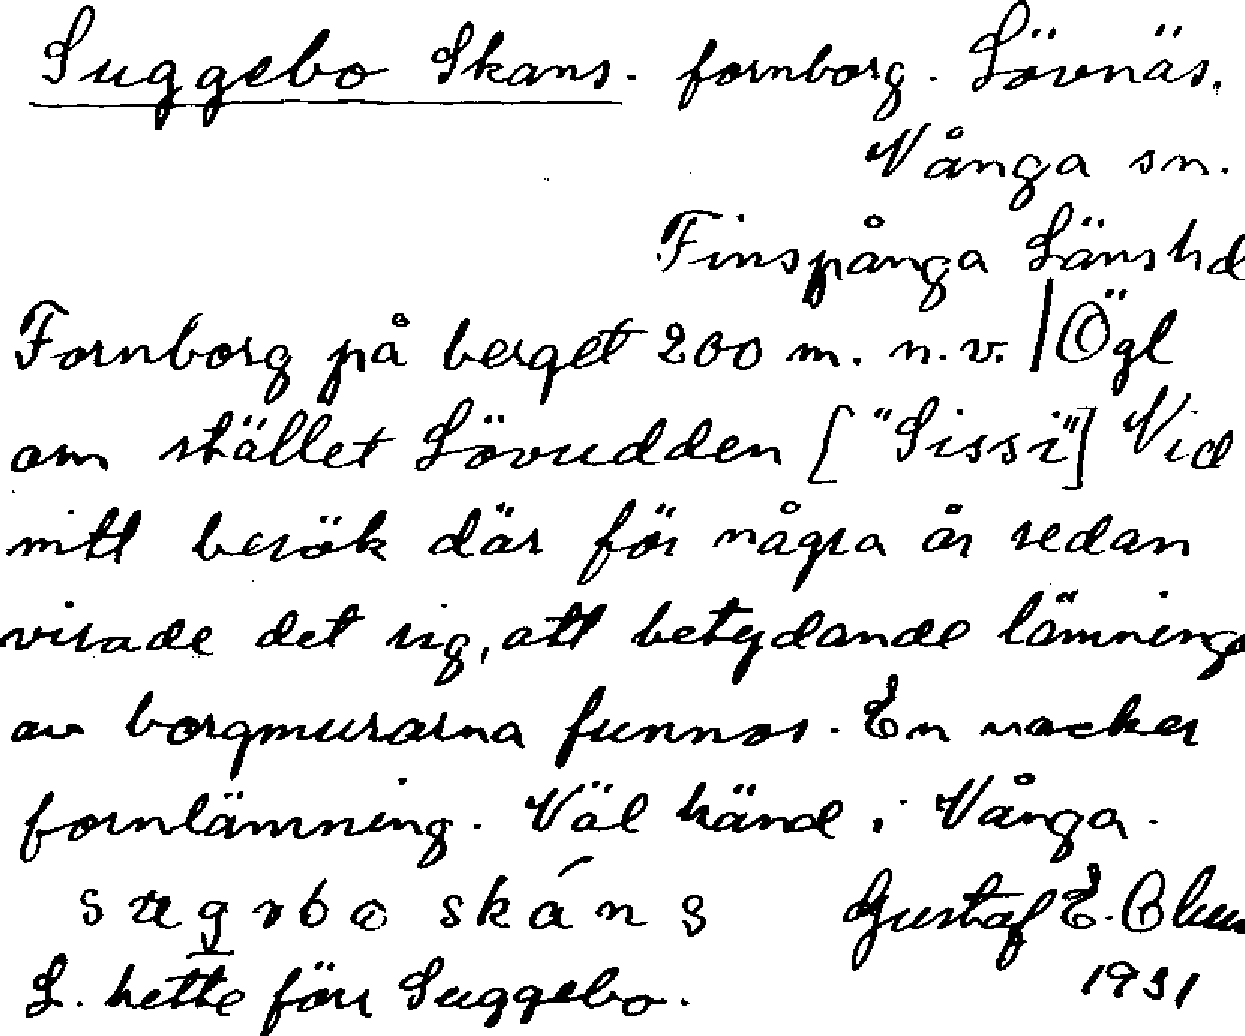 Suggebo Skans. fornborg. Lövnäs.
Vånga sn.
Finspånga Länshd
Fornborg på berget 200 m. n. v. | Ögl
om stället Lövudden ["Sissi"] Vid
mitt besök där för några år sedan
visade det sig, att betydande lämning
av borgmurarna funnos. En vacker
fornlämning. Väl känd i Vånga.
skáns Gustaf E.
L. hette förr Suggebo. 1931